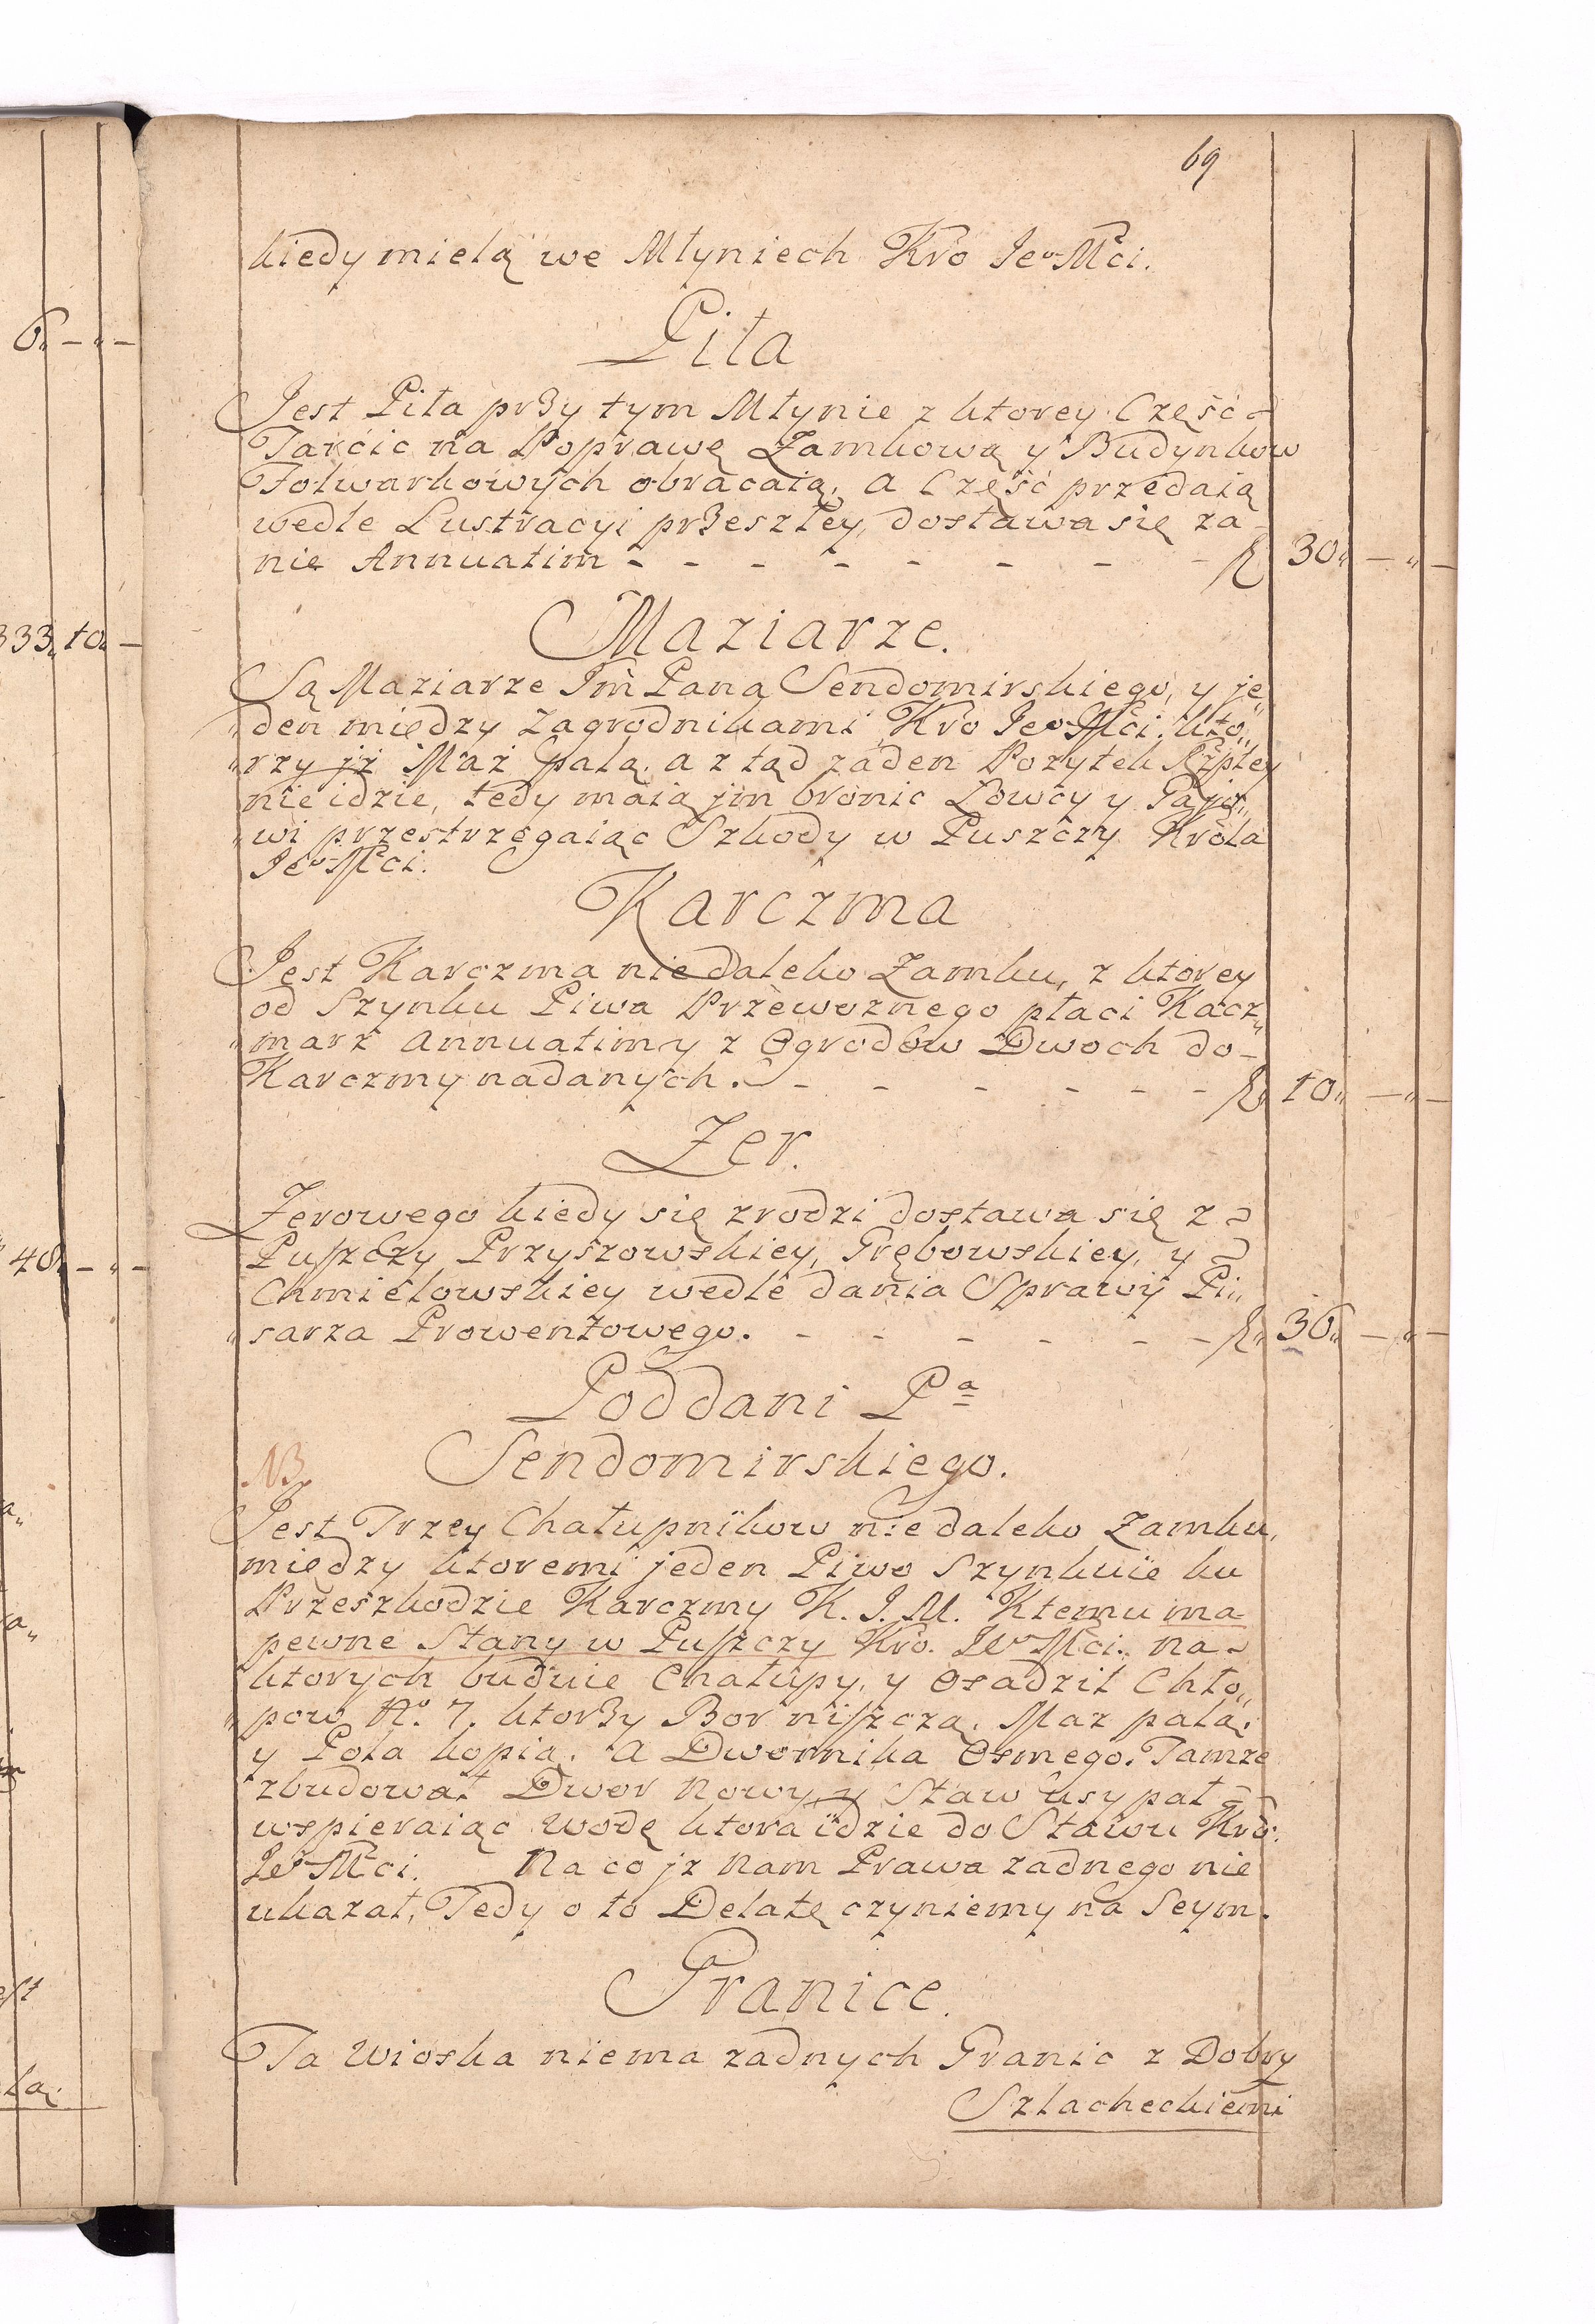 69
kiedy mielą we Młyniech Kro Jeo Mći.
Piła
Jest Piła przy tym Młynie z ktorey Część
Tarcic na Poprawę Zamkową y Budynkow
Folwarkowych obracaią, a Część przedaią
wedle Lustracyi przeszłey, dostawa się za
nie Annuatim - - - - - - - - 30„ — „ —
Maziarze.
Są Maziarze Jm̃ Pana Sendomirskiego, y je„
„den między Zagrodnikami Kro Jeo Mći. kto„
„rzy jż Maź palą, a z tąd żaden Pożytek Rzptey
nie idzie, tedy maią jm bronic Łowcy y Gajo„
„wi przestrzegaiąc Szkody w Puszczy Krola
Jeo Mći.
Karczma
Jest Karczma nie daleko Zamku, z ktorey
od Szynku Piwa Przewoznego płaci Kacz„
„marz annuatim y z Ogrodow Dwoch do-
Karczmy nadanych. - - - - - - 10„ — „ —
Zer.
Zerowego kiedy się zrodzi dostawa się z
Puszczy Przyszowskiey, Grębowskiey, y
Chmielowskiey wedle dania Sprawy Pi„
„sarza Prowentowego. - - - - - - 36„ — „ —
Poddani Pa
NB
Sendomirskiego.
Jest Trzey Chałupnikow nie daleko Zamku,
między ktoremi jeden Piwo Szynkuie ku
Przeszkodzie Karczmy K. J. M. Ktemu ma
pewne Stany w Puszczy Kro. Jeo Mći. na
ktorych buduie Chałupy, y Osadził Chło„
„pow No. 7. ktorzy Bor niszczą. Maz palą,
y Pola kopią. A Dwornika Osmego. Tamze
zbudował Dwor Nowy y Staw usypał
wspieraiąc wodę ktora idzie do Stawu Kro.
Jeo Mći. Na co jz Nam Prawa zadnego nie
ukazał, Tedy o to Delatę czyniemy na Seym.
Granice.
Ta Wioska niema zadnych Granic z Dobry
Szlacheckiemi